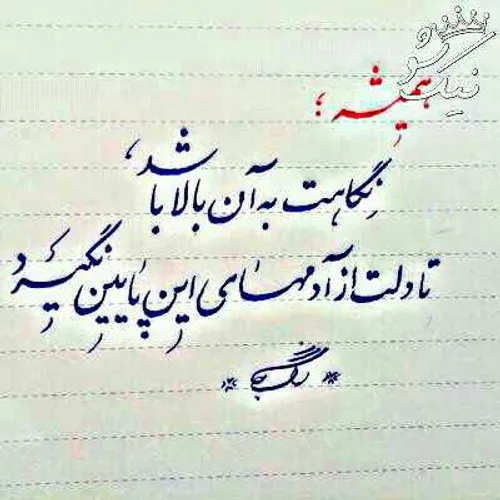 نیک شو
همیشه ؛
نگاهت به آن بالا باشد،
تا دلت از آدمهای این پایین نگیرد